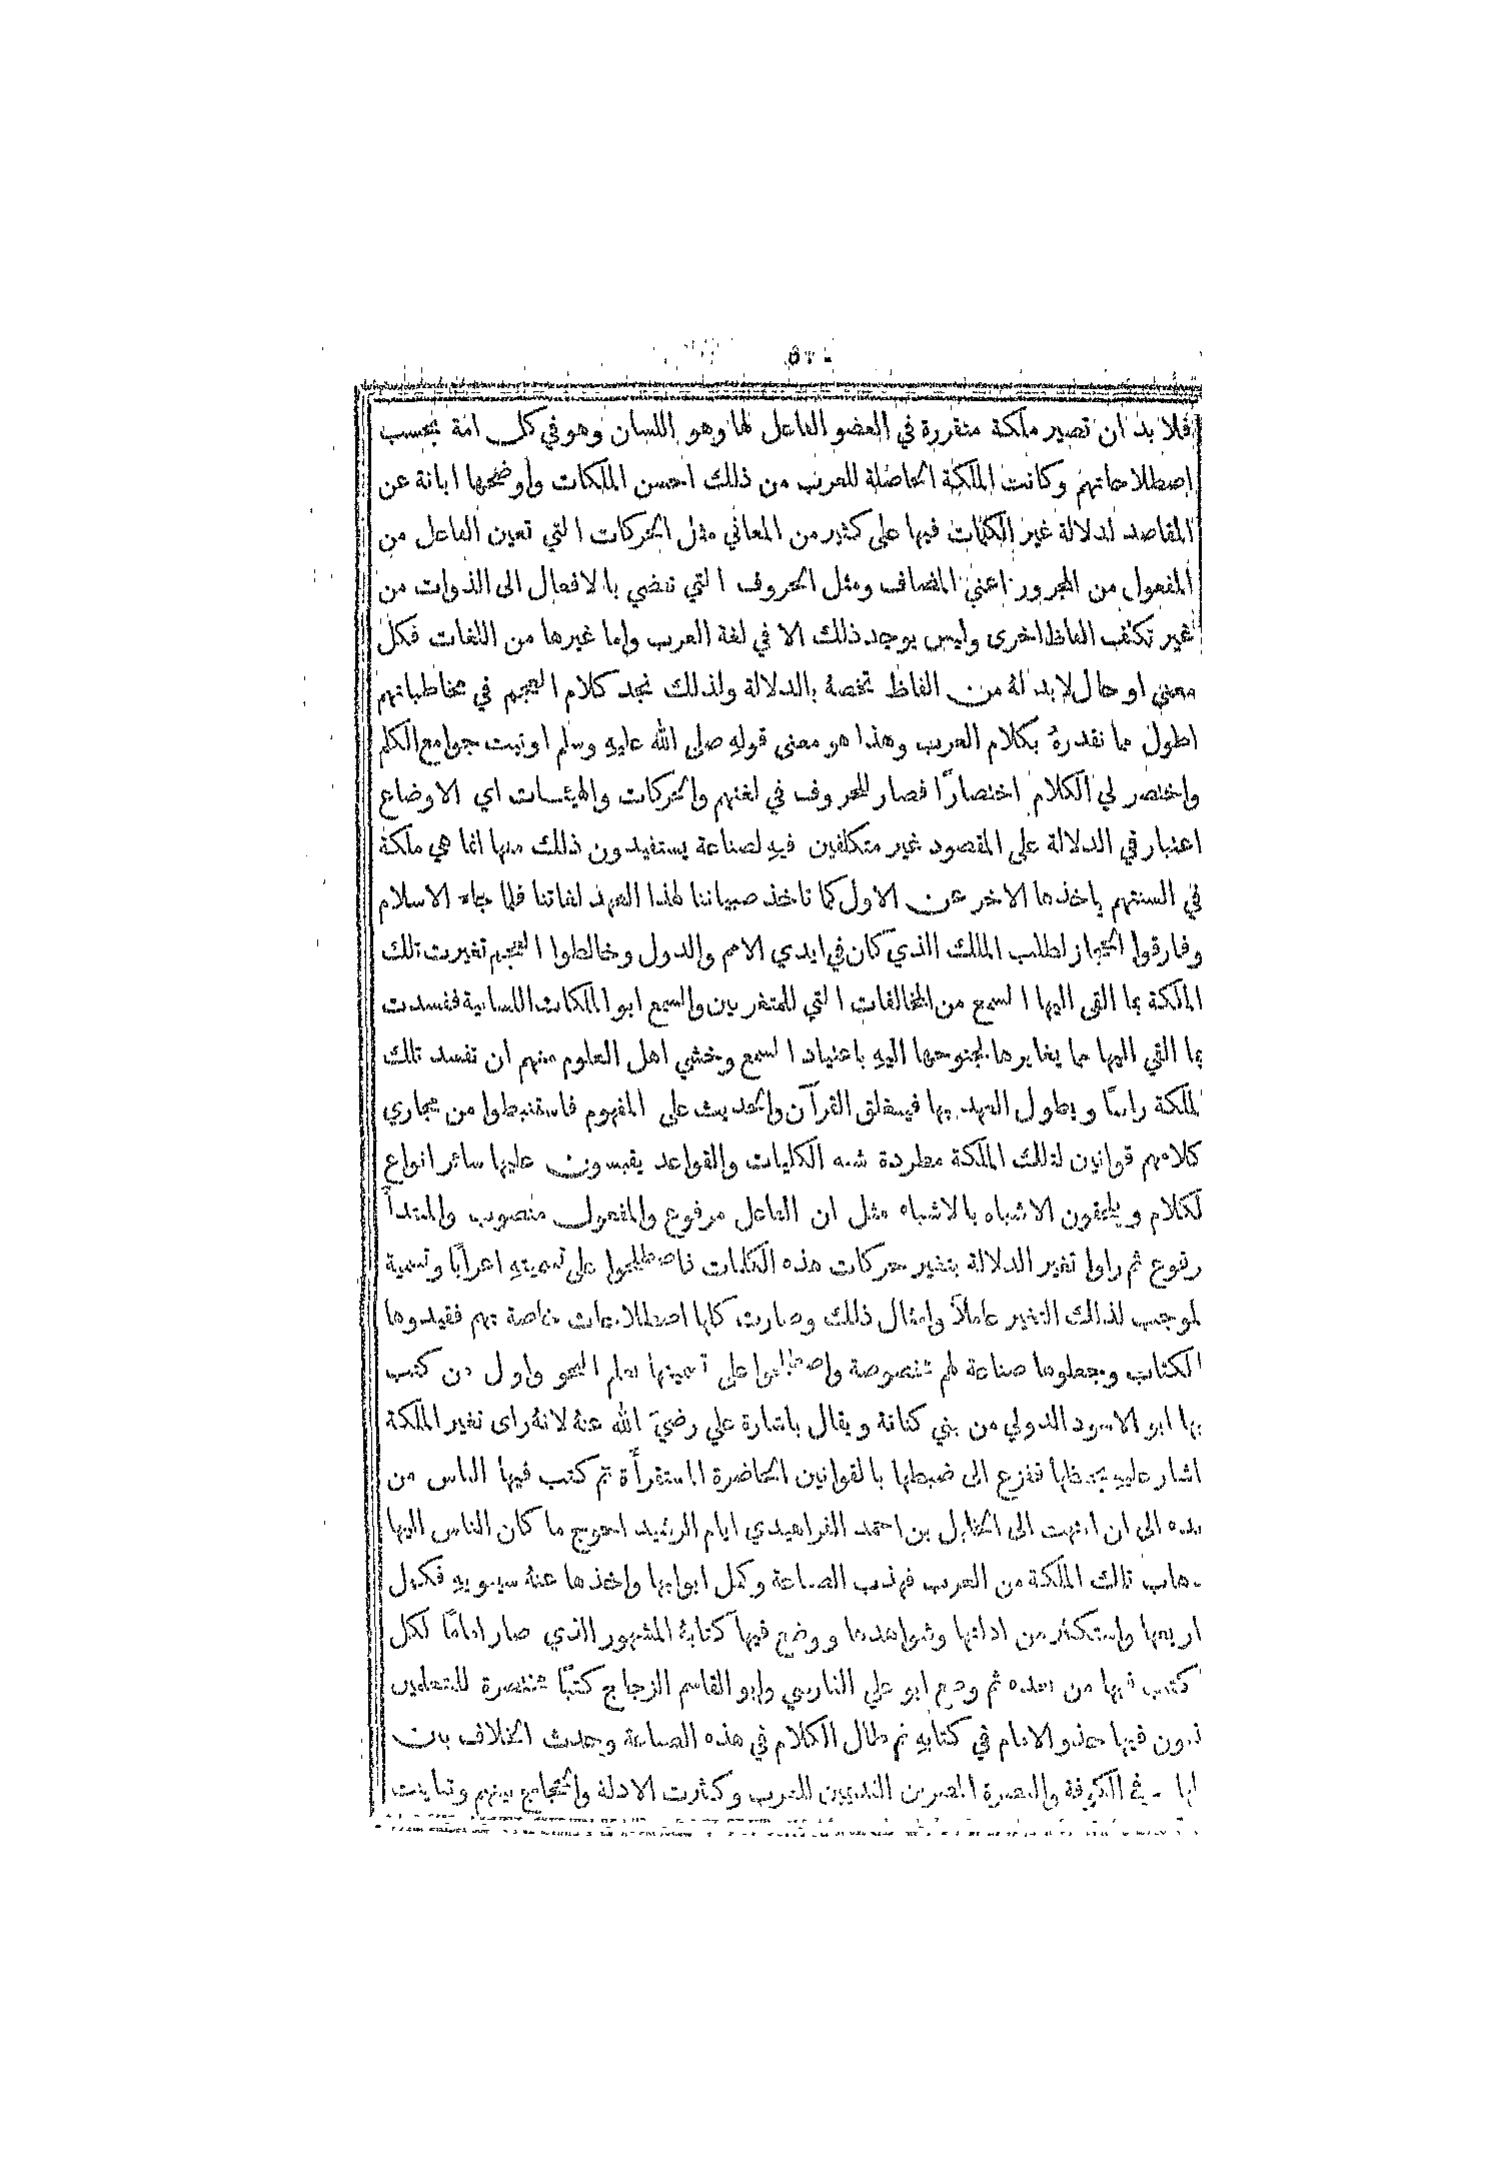 فلا بد ان تصير ملكة متقررة في العضو الفاعل لها وهو اللسان وهو في كل امة بحسب
اصطلاحاتهم وكانت الملكة الحاصلة للعرب من ذلك احسن الملكات واوضحها ابانة عن
المقاصد لدلالة غير الكلمات فيها على كثير من المعاني مثل الحركات التي تعين الفاعل من
المفعول من المجرور اعني المضاف ومثل الحروف التي تفضي بالافعال الى الذوات من
غير تكلف الفاظ اخرى وليس يوجد ذلك الا في لغة العرب واما غيرها من اللغات فكل
معنى او حال لا بد له من الفاظ تخصه بالدلالة ولذلك نجد كلام العجم في مخاطباتهم
اطول مما نقدره بكلام العرب وهذا هو معنى قوله صلى الله عليه وسلم اوتيت جوامع الكلم
واختصر لي الكلام اختصارًا فصار للحروف في لغتهم والحركات والهيئات اي الاوضاع
اعتبار في الدلالة على المقصود غير متكلفين فيه لصناعة يستفيدون ذلك منها انما هي ملكة
في السنتهم ياخذها الاخر عن الاول كما تاخذ صبياننا لهذا العهد لغاتنا فلما جاء الاسلام
وفارقوا الحجاز لطلب الملك الذي كان في ايدي الامم والدول وخالطوا العجم تغيرت تلك
الملكة بما القى اليها السمع من المخالفات التي للمتعربين والسمع ابو الملكات اللسانية ففسدت
بما القي اليها مما يغايرها لجنوحها اليه باعتياد السمع وخشي اهل العلوم منهم ان تفسد تلك
لملكة راسًا ويطول العهد بها فينغلق القرآن والحديث على المفهوم فاستنبطوا من مجاري
كلامهم قوانين لتلك الملكة مطردة شبه الكليات والقواعد يقيسون عليها سائر انواع
لكلام ويلحقون الاشباه بالاشباه مثل ان الفاعل مرفوع والمفعول منصوب والمبتدأ
رفوع ثم راوا تغير الدلالة بتغير حركات هذه الكلمات فاصطلحوا على تسميته اعرابًا وتسمية
لموجب لذلك التغير عاملًا وامثال ذلك وصارت كلها اصطلاحات خاصة بهم فقيدوها
الكتاب وجعلوها صناعة لهم مخصوصة واصطلحوا على تسميتها بعلم النحو واول من كتب
بها ابو الاسود الدولي من بني كنانة ويقال باشارة علي رضي الله عنه لانه راى تغير الملكة
اشار عليه بحفظها ففزع الى ضبطها بالقوانين الحاضرة المستقرأة ثم كتب فيها الناس من
بده الى ان انتهت الى الخليل بن احمد الفراهيدي ايام الرشيد احوج ما كان الناس اليها
هاب تلك الملكة من العرب فهذب الصناعة وكمل ابوابها واخذها عنه سيبويه فكمل
اريعها واستكثر من ادلتها وشواهدها ووضع فيها كتابه المشهور الذي صار امامًا لكل
كتب فيها من بعده ثم وضع ابو علي الفارسي وابو القاسم الزجاج كتبًا مختصرة للمتعلمين
ذون فيها حذو الامام في كتابه ثم طال الكلام في هذه الصناعة وحدث الخلاف بين
لها في الكوفة والبصرة المصرين القديمين للعرب وكثرت الادلة والحجاج بينهم وتباينت